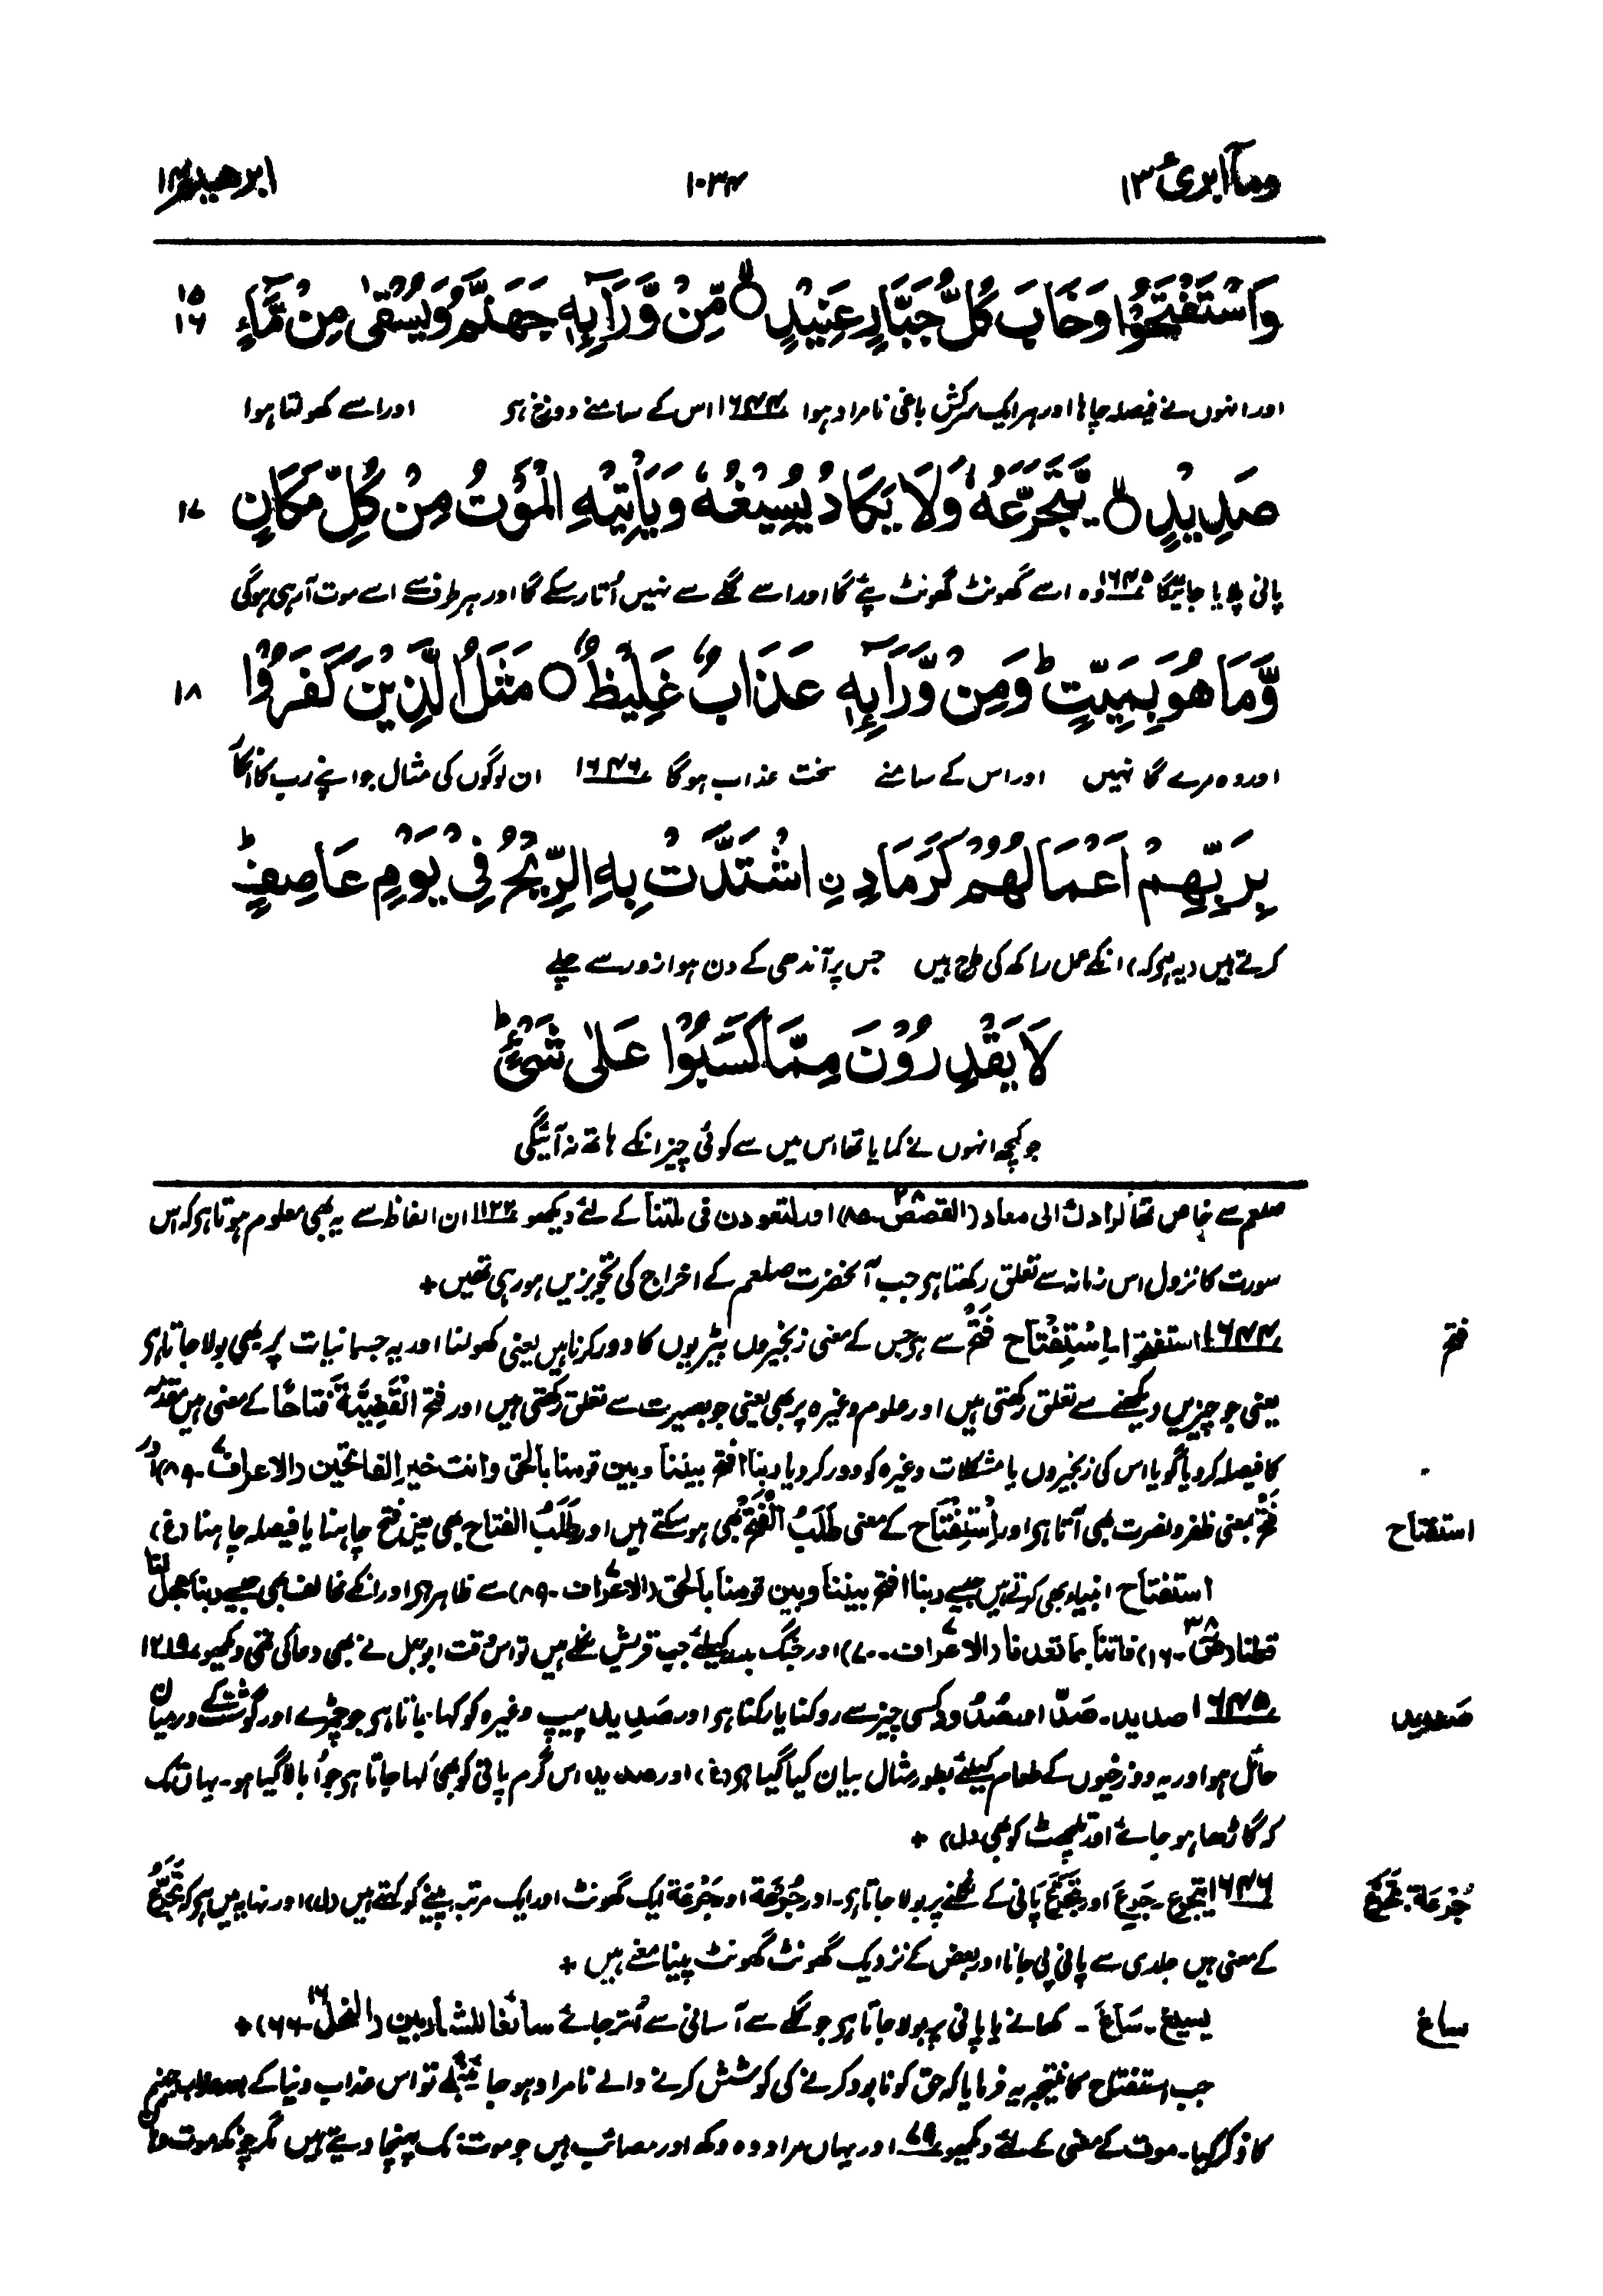 ومآ ابرئ ١٣ ١٠٣٤ ابرهيم ١٤
وَاسْتَفْتَحُوْا وَخَابَ كُلُّ جَبَّارٍ عَنِيْدٍ ۝ مِّنْ وَّرَآئِهٖ جَهَنَّمُ وَيُسْقٰى مِنْ مَّآءٍ ١٥ ١٦
اور انہوں نے فیصلہ چاہا اور ہر ایک سرکش باغی نامراد ہوا ١٦٤٤ اس کے سامنے دوزخ ہی اور اسے کھولتا ہوا
صَدِيْدٍ ۝ يَّتَجَرَّعُهٗ وَلَا يَكَادُ يُسِيْغُهٗ وَيَاْتِيْهِ الْمَوْتُ مِنْ كُلِّ مَكَانٍ ١٧
پانی پلایا جائیگا ١٦٤٥ وہ اسے گھونٹ گھونٹ پئے گا اور اسے گلے سے نہیں اُتار سکے گا اور ہر طرف سے اسے موت آرہی ہوگی
وَّمَا هُوَ بِمَيِّتٍ ؕ وَمِنْ وَّرَآئِهٖ عَذَابٌ غَلِيْظٌ ۝ مَثَلُ الَّذِيْنَ كَفَرُوْا ١٨
اور وہ مرے گا نہیں اور اس کے سامنے سخت عذاب ہوگا ١٦٤٦ ان لوگوں کی مثال جو اپنے رب کا انکار
بِرَبِّهِمْ اَعْمَالُهُمْ كَرَمَادِ ِۨ اشْتَدَّتْ بِهِ الرِّيْحُ فِيْ يَوْمٍ عَاصِفٍ ؕ
کرتے ہیں (یہ ہی کہ) انکے عمل راکھ کی طرح ہیں جس پر آندھی کے دن ہوا زور سے چلے
لَا يَقْدِرُوْنَ مِمَّا كَسَبُوْا عَلٰى شَيْءٍ ؕ
جو کچھ انہوں نے کمایا تھا اس میں سے کوئی چیز انکے ہاتھ نہ آئیگی
صلعم سے خاص تھا لرادك الى معاد (القصص ٢٨-٨٥) اور لتعودن فی ملتنا کے لئے دیکھو ان الفاظ سے یہ بھی معلوم ہوتا ہی کہ اس
سورت کا نزول اس زمانہ سے تعلق رکھتا ہی جب آنحضرت صلعم کے اخراج کی تجویزیں ہو رہی تھیں +
١٦٤٤ استفتحوا۔ اِسْتِفْتَاح فَتْح سے ہی جس کے معنی زنجیروں بیڑیوں کا دور کرنا ہیں یعنی کھولنا اور یہ جسمانیات پر بھی بولا جاتا ہی فتح
یعنی جو چیزیں دیکھنے سے تعلق رکھتی ہیں اور علوم وغیرہ پر بھی یعنی جو بصیرت سے تعلق رکھتی ہیں اور فتح القَضِیَّۃَ فَتَاحًا کے معنی ہیں مقدمہ
کا فیصلہ کر دیا گویا اس کی زنجیروں یا مشکلات وغیرہ کو دور کر دیا ربنا افتح بیننا وبین قومنا بالحق وانت خیر الفاتحین (الاعراف ٧-٨٩) اور
فَتْح بمعنی ظفر و نصرت بھی آتا ہی اور اِسْتِفْتَاح کے معنی طَلَبُ الْفَتْح بھی ہو سکتے ہیں اور طَلَبُ الفتاح بھی یعنی فتح چاہنا یا فیصلہ چاہنا (غ) استفتاح
استفتاح انبیاء بھی کرتے ہیں جیسے ربنا افتح بیننا وبین قومنا بالحق (الاعراف ٧-٨٩) سے ظاہر ہی اور انکے مخالف بھی جیسے ربنا عجل لنا
قطنا (صٓ ٣٨-١٦) فاتنا بما تعدنا (الاعراف ٧-٧٠) اور جنگ بدر کیلئے جب قریش نکلے ہیں تو اس وقت ابو جہل نے بھی دعا کی تھی دیکھو ١٢١٩
١٦٤٥ صدید۔ صَدّ اور صُدُوْد کسی چیز سے روکنا یا رکنا ہی اور صَدِید پیپ وغیرہ کو کہا جاتا ہی جو چمڑے اور گوشت کے درمیان صدید
حائل ہو اور یہ دوزخیوں کے طعام کیلئے بطور مثال بیان کیا گیا ہی (غ) اور صدید اس گرم پانی کو بھی کہا جاتا ہی جو اُبالا گیا ہو۔ یہاں تک
کہ گاڑھا ہو جائے اور تلچھٹ کو بھی (ل) +
١٦٤٦ یتجرع۔ جَرِعَ اور تَجَرَّعَ پانی کے نگلنے پر بولا جاتا ہی۔ اور جُرْعَة اور جَرْعَة ایک گھونٹ اور ایک مرتبہ پینے کو کہتے ہیں (ل) اور نہایہ میں ہی کہ تَجَرُّعٌ جُرْعَة۔ تَجَرُّع
کے معنی ہیں جلدی سے پانی پی جانا اور بعض کے نزدیک گھونٹ گھونٹ پینا معنے ہیں +
یسیغ۔ سَاغَ۔ کھانے یا پانی پر بولا جاتا ہی جو گلے سے آسانی سے اُتر جائے سائغا للشاربین (النحل ١٦-٦٦) + ساغ
جب استفتاح کا نتیجہ یہ فرمایا کہ حق کو نابود کرنے کی کوشش کرنے والے نامراد ہو جائینگے تو اس عذاب دنیا کے بعد عذاب جہنم
کا ذکر کیا۔ موت کے معنی کے لئے دیکھو اور یہاں مراد وہ دکھ اور مصائب ہیں جو موت تک پہنچا دیتے ہیں مگر چونکہ موت